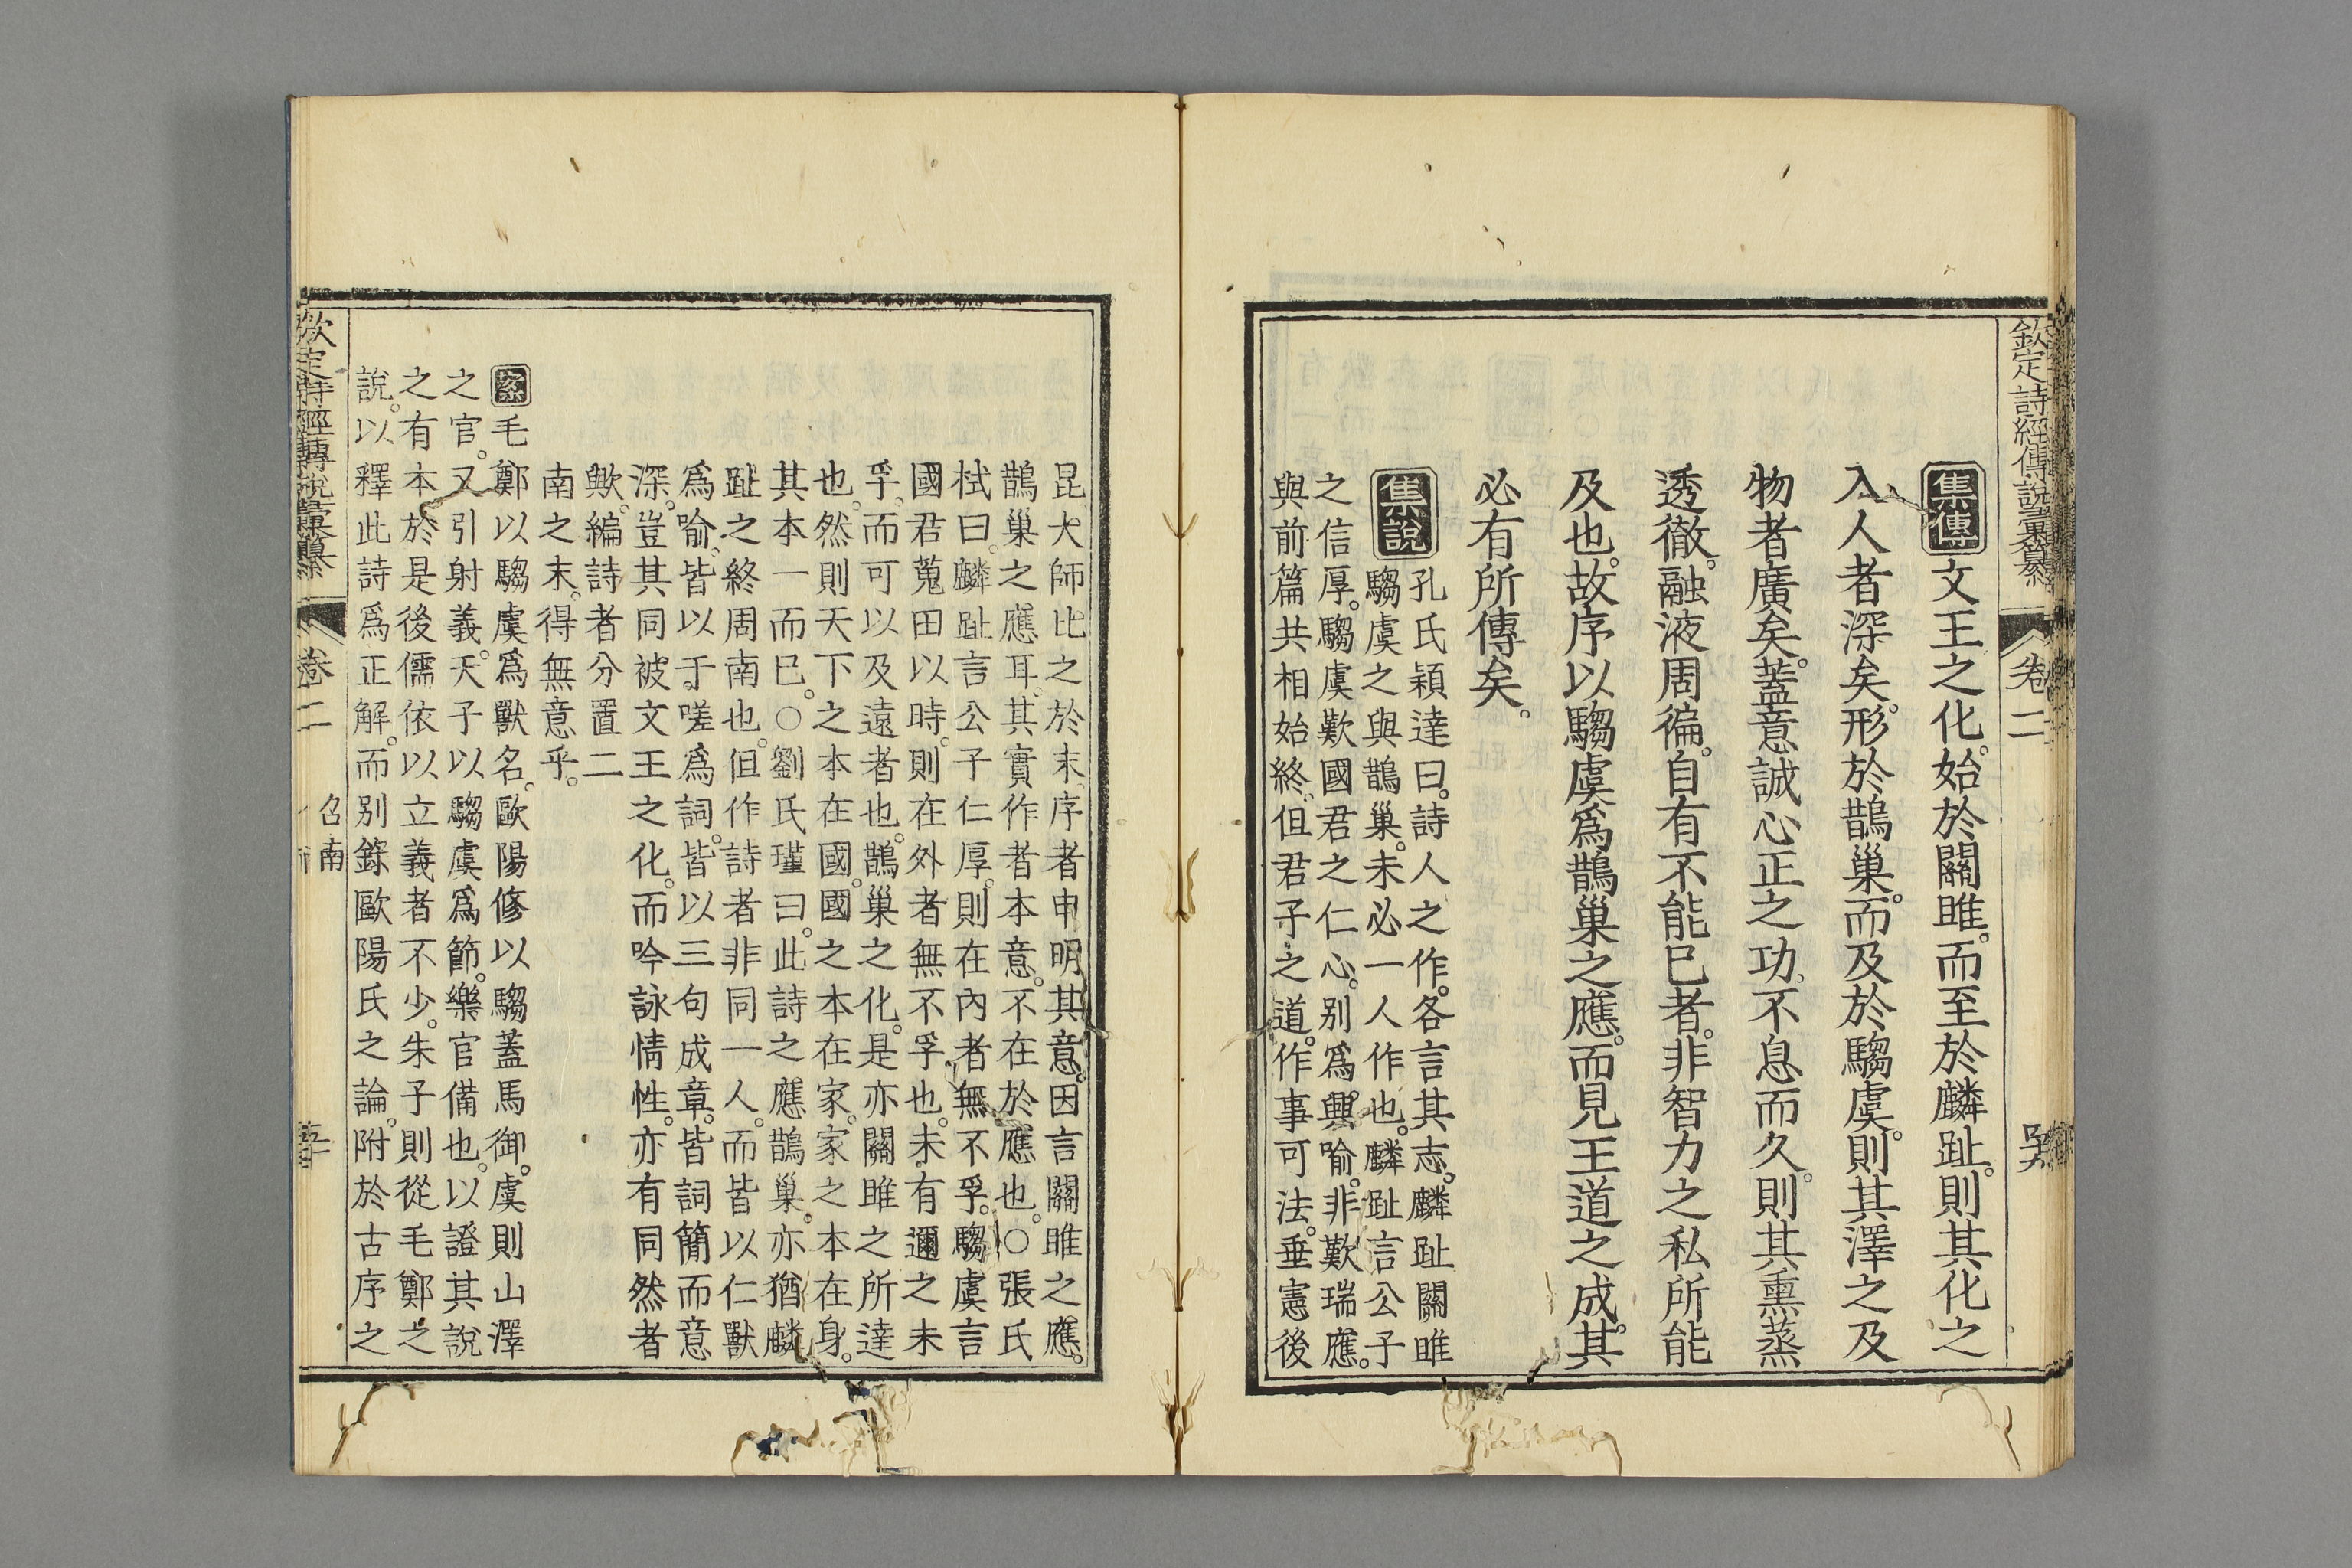 欽定詩經傳說彙纂 卷二
集傳 文王之化。始於關雎。而至於麟趾。則其化之
入人者深矣。形於鵲巢。而及於騶虞。則其澤之及
物者廣矣。蓋意誠心正之功。不息而久。則其熏蒸
透徹。融液周徧。自有不能已者。非智力之私所能
及也。故序以騶虞爲鵲巢之應。而見王道之成。其
必有所傳矣。
集說 孔氏穎達曰。詩人之作。各言其志。麟趾關雎
騶虞之與鵲巢。未必一人作也。麟趾言公子
之信厚。騶虞歎國君之仁心。别爲興喻。非歎瑞應。
與前篇共相始終。但君子之道。作事可法。垂憲後
昆。大師比之於末。序者申明其意。因言關雎之應。
鵲巢之應耳。其實作者本意。不在於應也。○張氏
栻曰。麟趾言公子仁厚。則在內者無不孚。騶虞言
國君蒐田以時。則在外者無不孚也。未有邇之未
孚。而可以及遠者也。鵲巢之化。是亦關雎之所達
也。然則天下之本在國。國之本在家。家之本在身。
其本一而已。○劉氏瑾曰。此詩之應鵲巢。亦猶麟
趾之終周南也。但作詩者非同一人。而皆以仁獸
爲喻。皆以于嗟爲詞。皆以三句成章。皆詞簡而意
深。豈其同被文王之化。而吟詠情性。亦有同然者
歟。編詩者分置二
南之末。得無意乎。
案 毛鄭以騶虞爲獸名。歐陽修以騶蓋馬御。虞則山澤
之官。又引射義。天子以騶虞爲節。樂官備也。以證其說
之有本。於是後儒依以立義者不少。朱子則從毛鄭之
說。以釋此詩爲正解。而别錄歐陽氏之論。附於古序之
欽定詩經傳說彙纂 卷二 召南